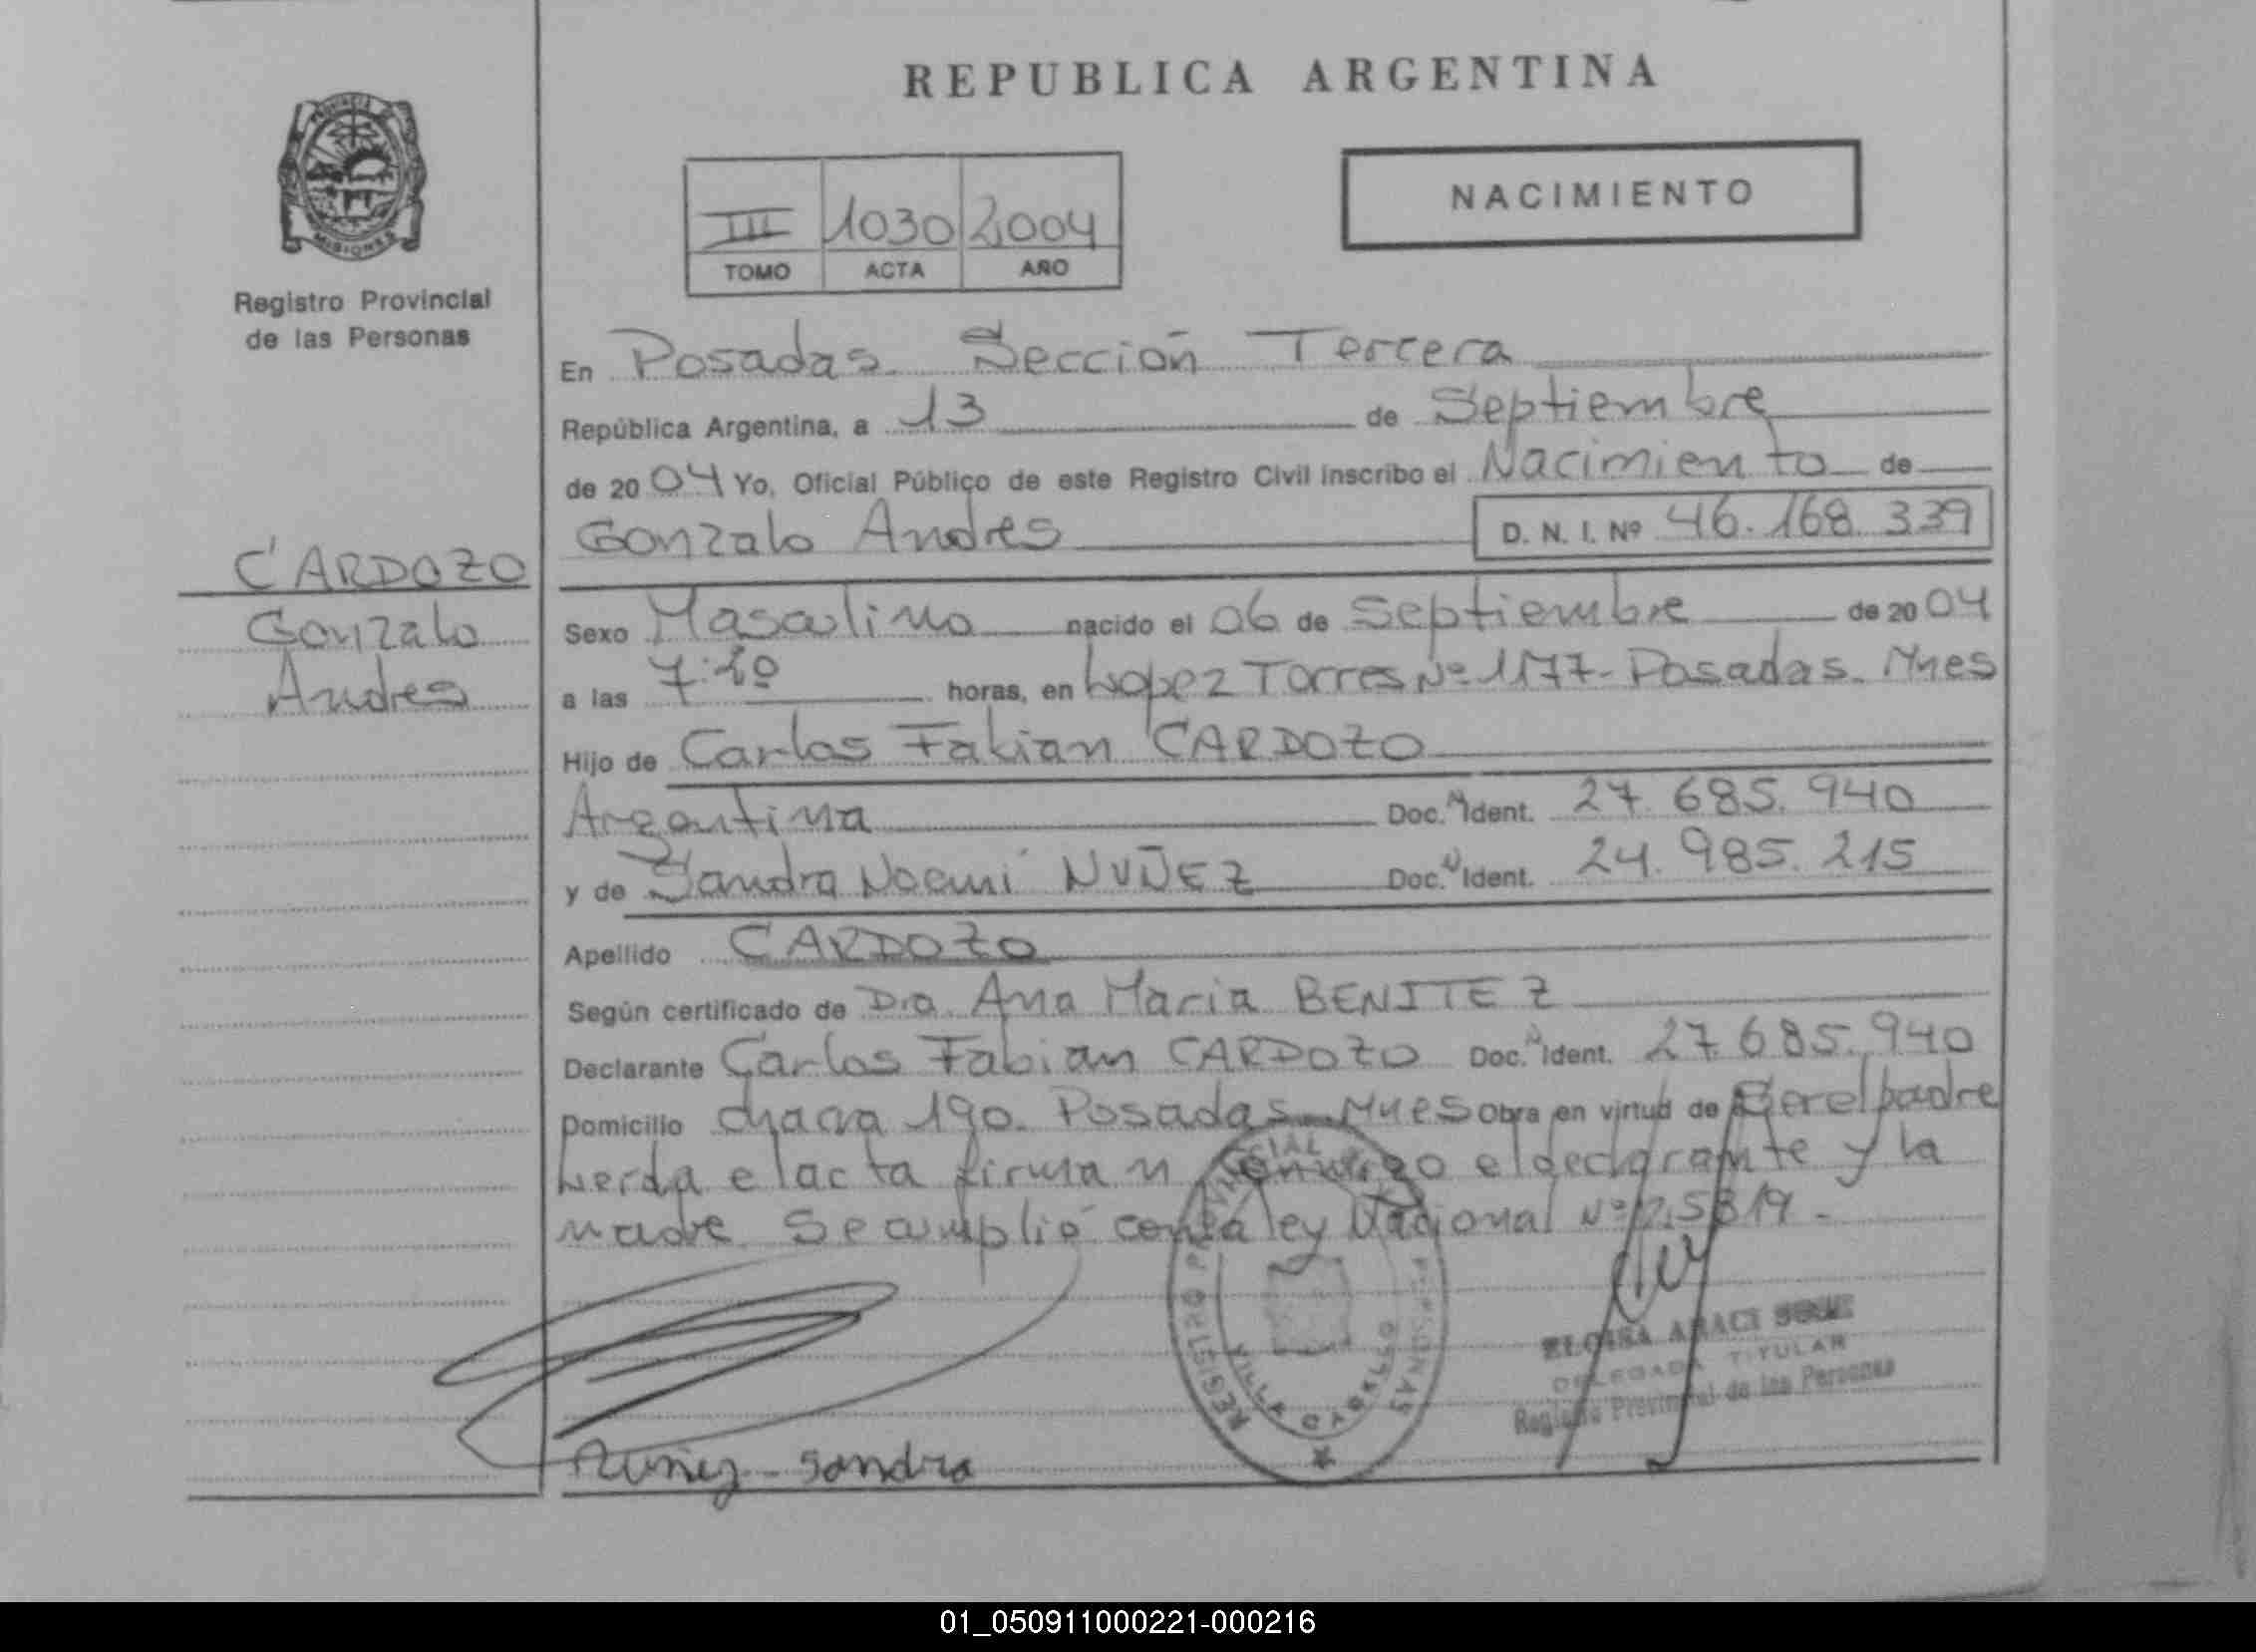 REPUBLICA ARGENTINA
PROVINCIA
MISIONES
Registro Provincial
de las Personas
III 1030 2004
TOMO ACTA AÑO
NACIMIENTO
En Posadas Sección Tercera
República Argentina, a 13 de Septiembre
de 20 04 Yo, Oficial Público de este Registro Civil inscribo el Nacimiento de
Gonzalo Andres D. N. I. Nº 46.168.339
CARDOZO
Gonzalo
Andres
Sexo Masculino nacido el 06 de Septiembre de 20 04
a las 7:20 horas, en Lopez Torres Nº 1177- Posadas. Mnes
Hijo de Carlos Fabian CARDOZO
Argentina Doc. N Ident. 27.685.940
y de Sandra Noemí NUÑEZ Doc. N Ident. 24.985.215
Apellido CARDOZO
Según certificado de Dra. Ana Maria BENITEZ
Declarante Carlos Fabian CARDOZO Doc. N Ident. 27.685.940
Domicilio chacra 190. Posadas. Mnes Obra en virtud de Ser el padre
Leida el acta firman conmigo el declarante y la
madre. Se cumplió con la ley Nacional Nº
REGISTRO PROVINCIAL PERSONAS
VILLA CABELLO
DELEGADA TITULAR
Registro Provincial de las Personas
Nuñez Sandra
01_050911000221-000216